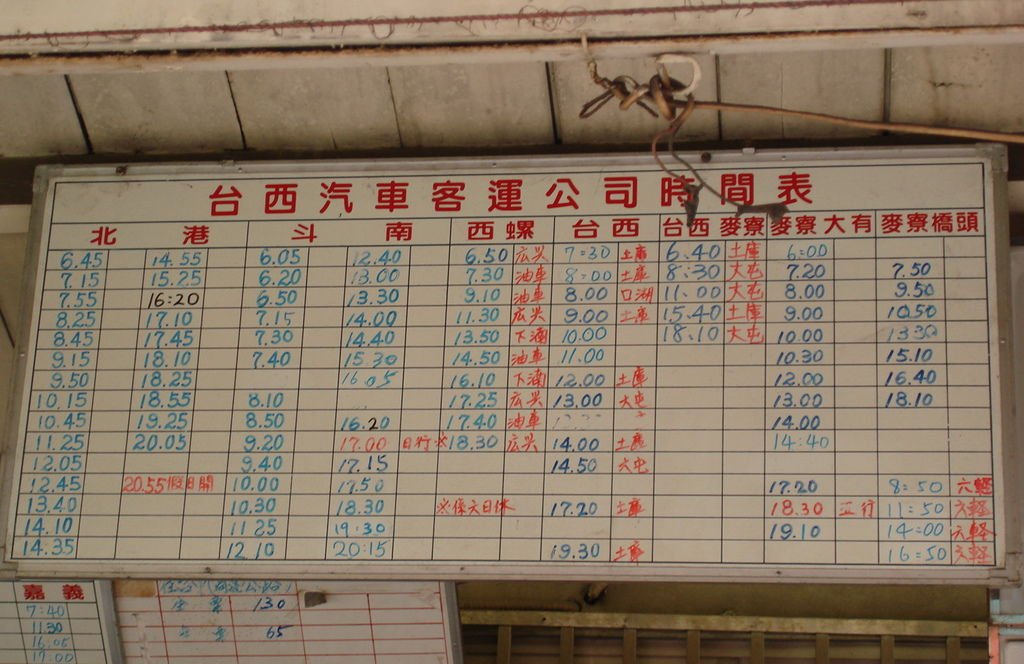 台西汽車客運公司時間表
北港 斗南 西螺 台西 台西 麥寮 麥寮 大有 麥寮橋頭
6.45 14.55 6.05 12.40 6.50 広兴 7:30 土庫 6.40 土庫 6:00
7.15 15.25 6.20 13.00 7.30 油車 8:00 土庫 8:30 大屯 7.20 7.50
7.55 16:20 6.50 13.30 9.10 油車 8.00 口湖 11.00 大屯 8.00 9.50
8.25 17.10 7.15 14.00 11.30 広兴 9.00 土庫 15.40 土庫 9.00 10.50
8.45 17.45 7.30 14.40 13.50 下湳 10.00 18.10 大屯 10.00 13.30
9.15 18.10 7.40 15.30 14.50 油車 11.00 10.30 15.10
9.50 18.25 16.05 16.10 下湳 12.00 土庫 12.00 16.40
10.15 18.55 8.10 17.25 広兴 13.00 大屯 13.00 18.10
10.45 19.25 8.50 16.20 17.40 油車 14.00
11.25 20.05 9.20 17.00 日行※ 18.30 広兴 14.00 土庫 14:40
12.05 9.40 17.15 14.50 大屯
12.45 20.55 假日開 10.00 17.50 17.20 8:50 六輕
13.40 10.30 18.30 ※係六日休 17.20 土庫 18.30 正行 11:50 六輕
14.10 11.25 19:30 19.10 14:00 六輕
14.35 12.10 20:15 19.30 土庫 16:50 六輕
嘉義
7:40
11.30
16:05
17:00
全票 130
65